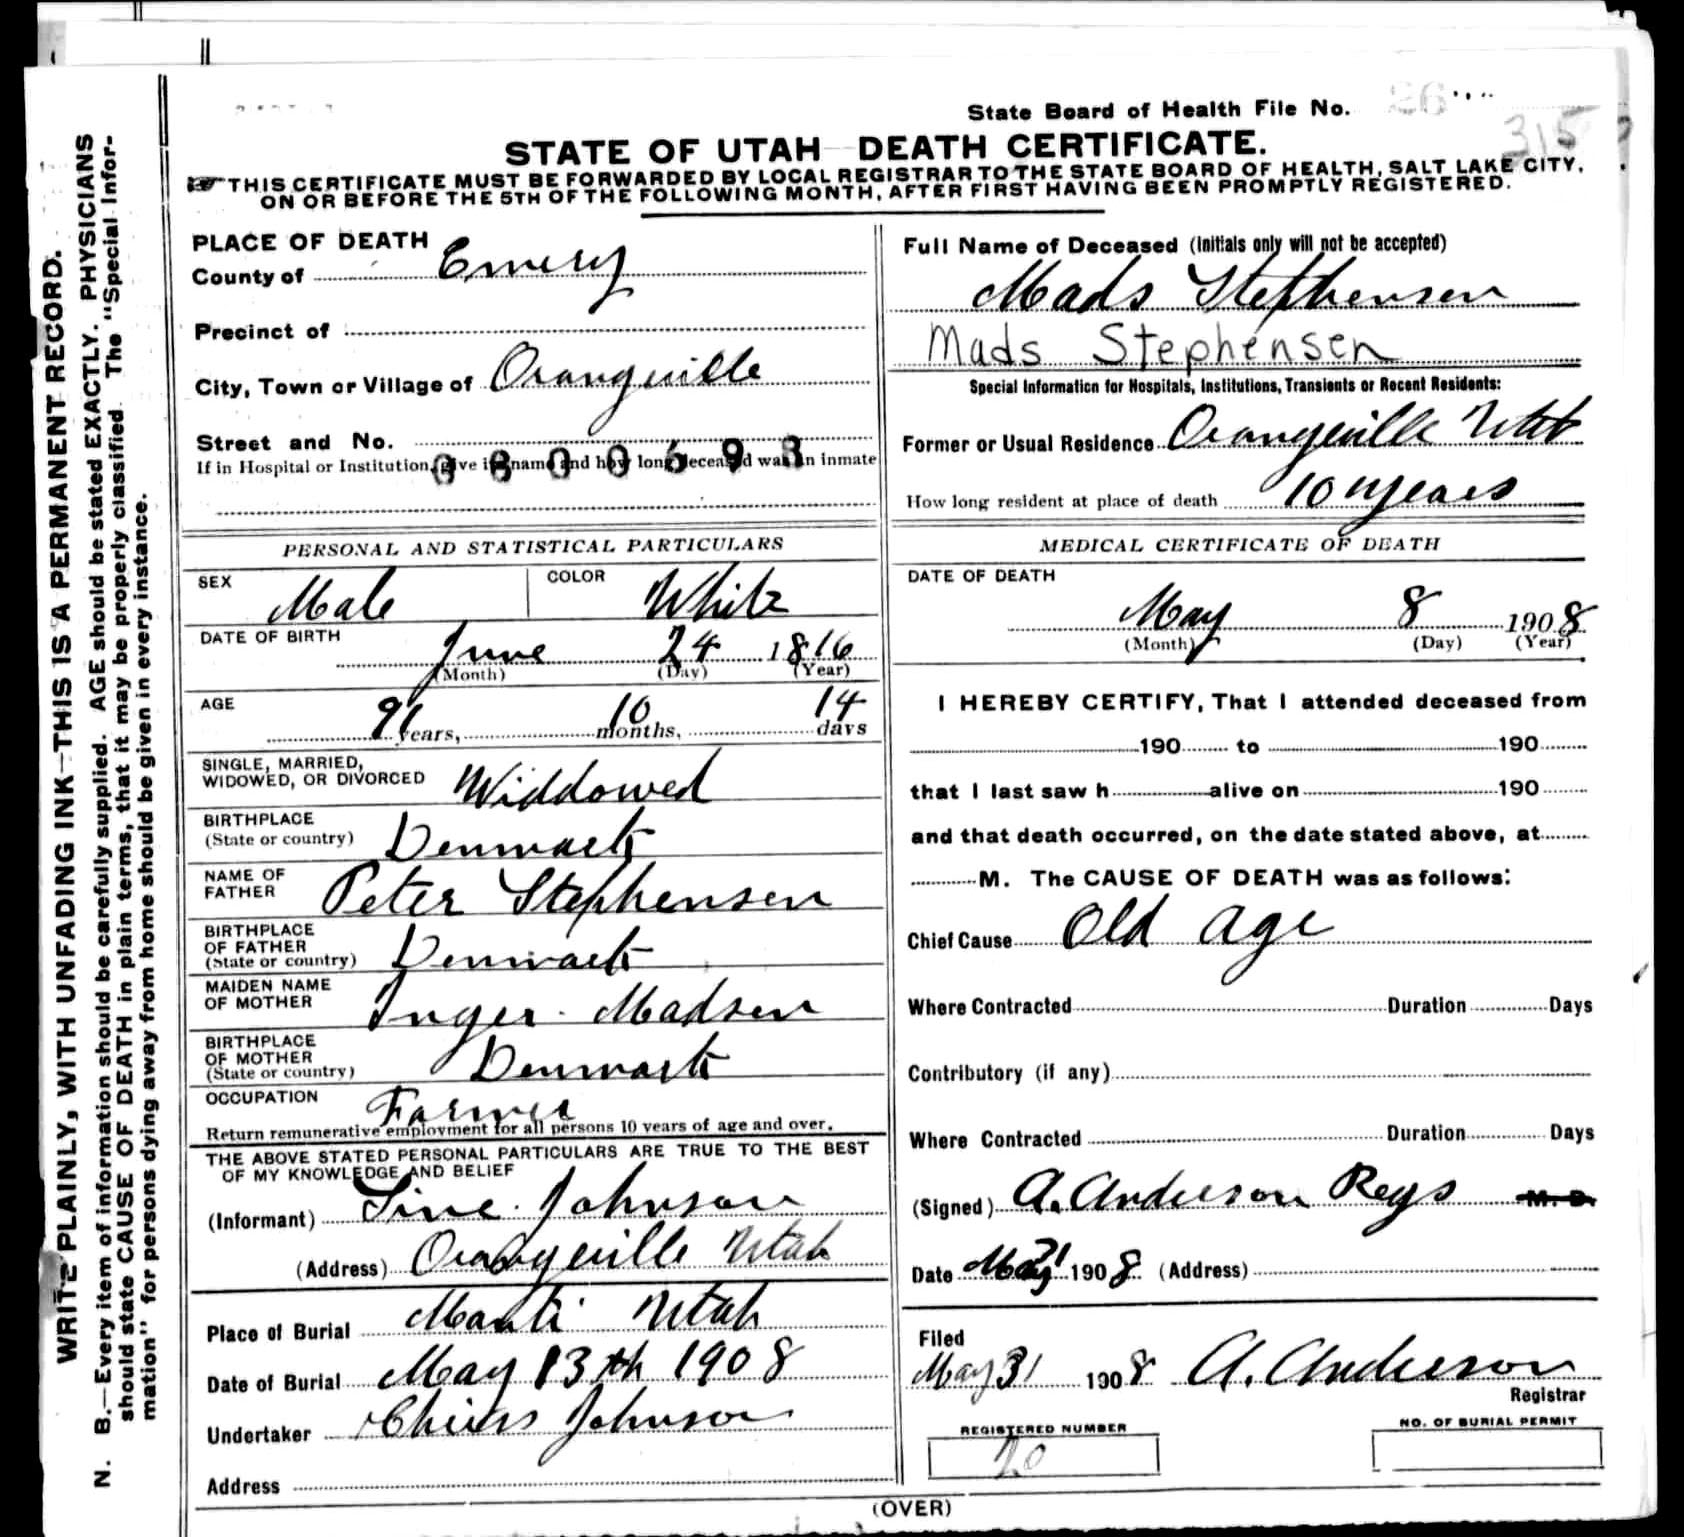 State Board of Health File No. 26
315
STATE OF UTAH DEATH CERTIFICATE.
THIS CERTIFICATE MUST BE FORWARDED BY LOCAL REGISTRAR TO THE STATE BOARD OF HEALTH, SALT LAKE CITY,
ON OR BEFORE THE 5TH OF THE FOLLOWING MONTH, AFTER FIRST HAVING BEEN PROMPTLY REGISTERED.
WRITE PLAINLY, WITH UNFADING INK—THIS IS A PERMANENT RECORD.
N. B.—Every item of information should be carefully supplied. AGE should be stated EXACTLY. PHYSICIANS
should state CAUSE OF DEATH in plain terms, that it may be properly classified. The "Special Infor-
mation" for persons dying away from home should be given in every instance.
PLACE OF DEATH
County of Emery
Precinct of
City, Town or Village of Orangeville
Street and No.
If in Hospital or Institution, give its name and how long deceased was an inmate
PERSONAL AND STATISTICAL PARTICULARS
SEX Male COLOR White
DATE OF BIRTH June 24 1816
(Month) (Day) (Year)
AGE 91 years, 10 months, 14 days
SINGLE, MARRIED,
WIDOWED, OR DIVORCED Widdowed
BIRTHPLACE
(State or country) Denmark
NAME OF
FATHER Peter Stephensen
BIRTHPLACE
OF FATHER
(State or country) Denmark
MAIDEN NAME
OF MOTHER Inger Madsen
BIRTHPLACE
OF MOTHER
(State or country) Denmark
OCCUPATION Farmer
Return remunerative employment for all persons 10 years of age and over.
THE ABOVE STATED PERSONAL PARTICULARS ARE TRUE TO THE BEST
OF MY KNOWLEDGE AND BELIEF
(Informant) Sine Johnson
(Address) Orangeville Utah
Place of Burial Manti Utah
Date of Burial May 13th 1908
Undertaker Johnson
Address
Full Name of Deceased (Initials only will not be accepted)
Mads Stephensen
Mads Stephensen
Special Information for Hospitals, Institutions, Transients or Recent Residents:
Former or Usual Residence Orangeville Utah
How long resident at place of death 10 years
MEDICAL CERTIFICATE OF DEATH
DATE OF DEATH
May 8 1908
(Month) (Day) (Year)
I HEREBY CERTIFY, That I attended deceased from
190 to 190
that I last saw h alive on 190
and that death occurred, on the date stated above, at
M. The CAUSE OF DEATH was as follows:
Chief Cause Old age
Where Contracted Duration Days
Contributory (if any)
Where Contracted Duration Days
(Signed) A. Anderson Regs M. D.
Date May 31 1908 (Address)
Filed
May 31 1908 A. Anderson
Registrar
REGISTERED NUMBER
20
NO. OF BURIAL PERMIT
(OVER)